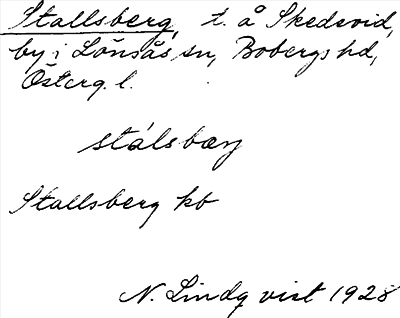 Stallsberg, t. å Skedevid,
by i Lönsås sn, Bobergs hd,
Österg. l.
stálsbærj
Stallsberg kb
N. Lindqvist 1928